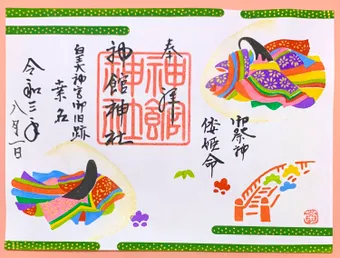 奉拝
御祭神
倭姫命
神館神社
神館神社
皇大神宮御旧跡
桑名
令和三年
八月一日